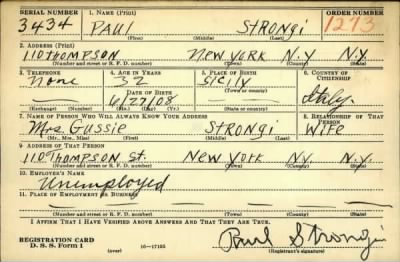 SERIAL NUMBER 1. NAME (Print) ORDER NUMBER
3434 PAUL STRONGI 1273
(First) (Middle) (Last)
2. ADDRESS (Print)
110 THOMPSON NEW YORK N.Y N.Y.
(Number and street or R. F. D. number) (Town) (County) (State)
3. TELEPHONE 4. AGE IN YEARS 5. PLACE OF BIRTH 6. COUNTRY OF CITIZENSHIP
None 32 SICILY Italy
DATE OF BIRTH
6/27/08
(Exchange) (Number) (Mo.) (Day) (Yr.) (Town or county) (State or country)
7. NAME OF PERSON WHO WILL ALWAYS KNOW YOUR ADDRESS 8. RELATIONSHIP OF THAT PERSON
Mrs. Gussie STRONGI WIFE
(Mr., Mrs., Miss) (First) (Middle) (Last)
9. ADDRESS OF THAT PERSON
110 THOMPSON St. NEW YORK NY. N.Y.
(Number and street or R. F. D. number) (Town) (County) (State)
10. EMPLOYER'S NAME
Unemployed
11. PLACE OF EMPLOYMENT OR BUSINESS
(Number and street or R. F. D. number) (Town) (County) (State)
I AFFIRM THAT I HAVE VERIFIED ABOVE ANSWERS AND THAT THEY ARE TRUE.
REGISTRATION CARD
D. S. S. Form 1 (over) 16—17105
Paul Strongi
(Registrant's signature)